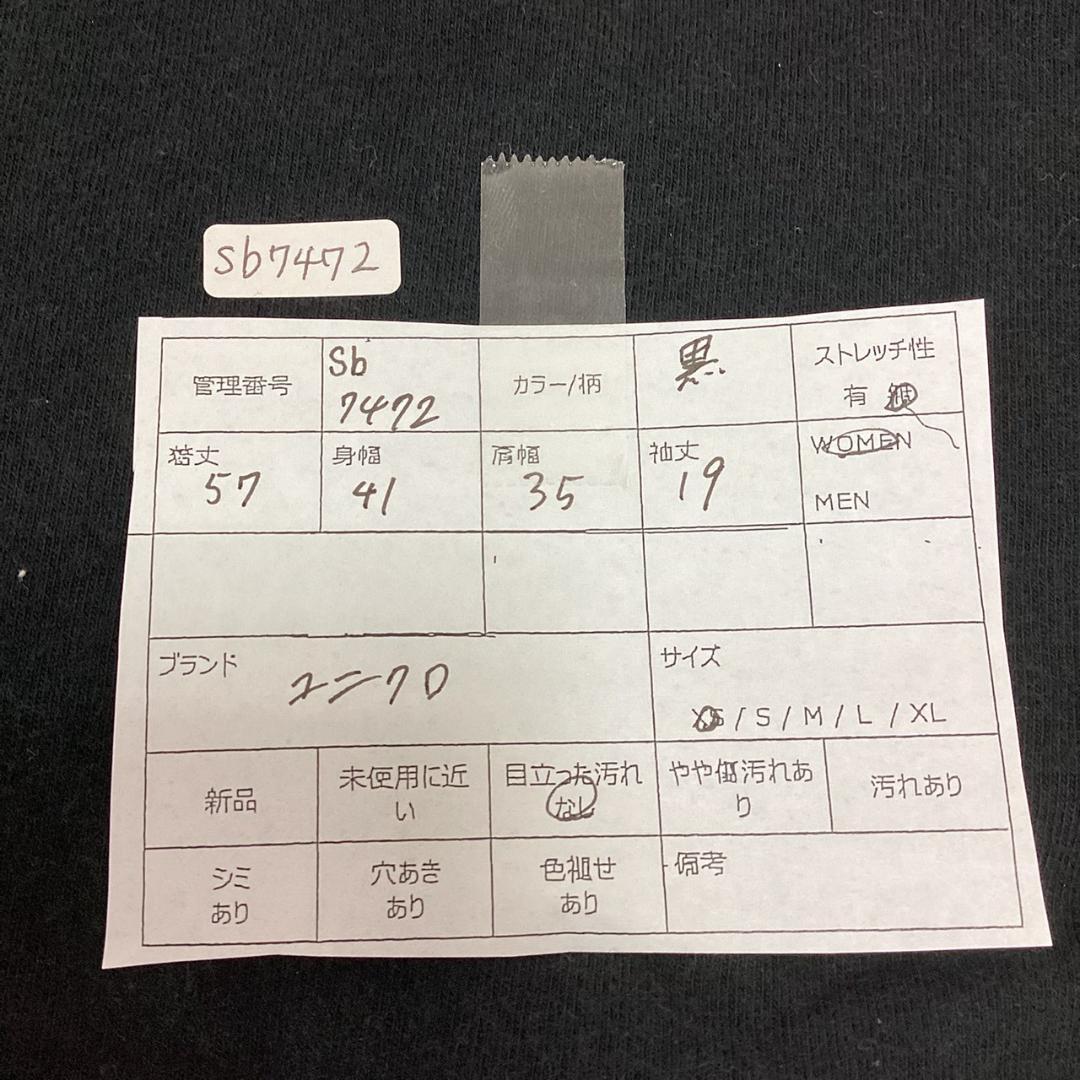 Sb7472
管理番号
Sb
7472
カラー/柄
黒
ストレッチ性
有 無
着丈
57
身幅
41
肩幅
35
袖丈
19
WOMEN
MEN
ブランド
ユニクロ
サイズ
XS / S / M / L / XL
新品
未使用に近
い
目立った汚れ
なし
やや傷汚れあ
り
汚れあり
シミ
あり
穴あき
あり
色褪せ
あり
備考